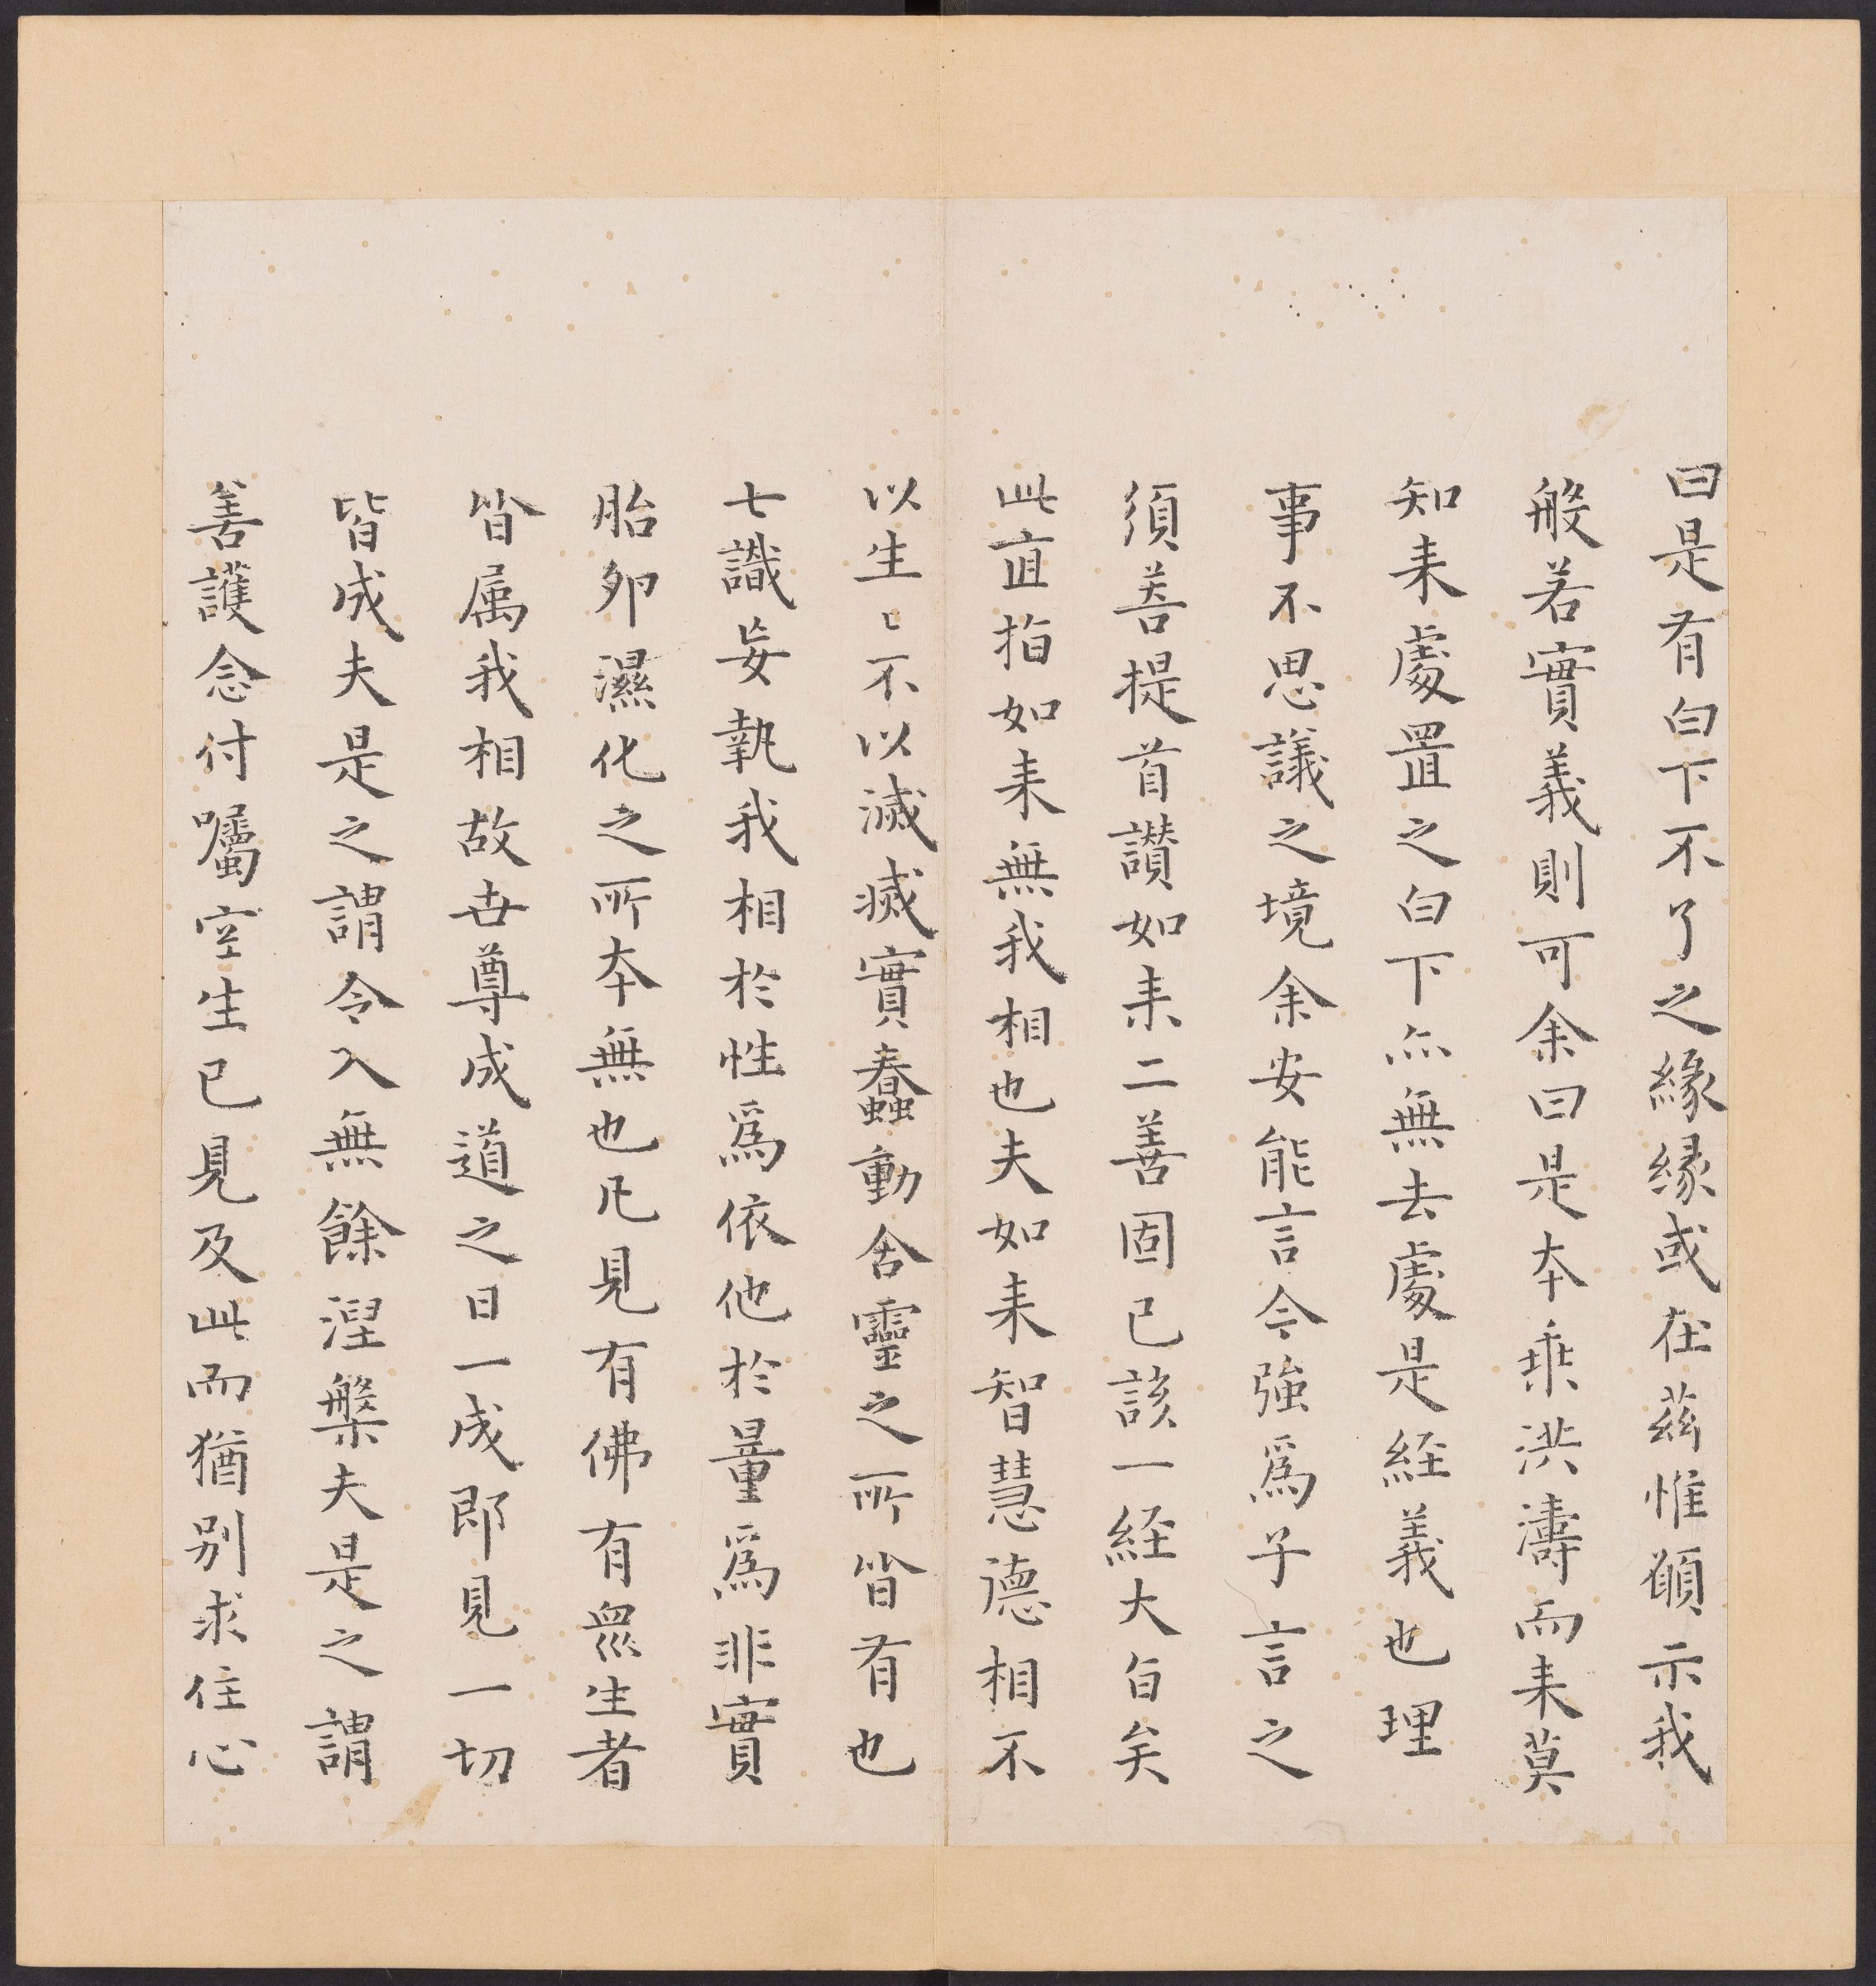 曰是有白下不了之緣緣或在茲惟願示我
般若實義則可余曰是本乘洪濤而来莫
知来處置之白下亦無去處是経義也理
事不思議之境余安能言今強爲子言之
須菩提首讃如来二善固已該一経大旨矣
此直指如来無我相也夫如来智慧德相不
以生〻不以滅滅實蠢動含靈之所皆有也
七識妄執我相於性爲依他於量爲非實
胎卵濕化之所本無也凡見有佛有眾生者
皆属我相故世尊成道之日一成即見一切
皆成夫是之謂令入無餘涅槃夫是之謂
善護念付囑空生已見及此而猶別求住心